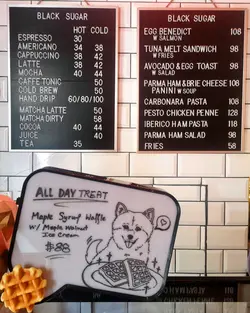 BLACK SUGAR
HOT COLD
ESPRESSO 30
AMERICANO 34 38
CAPPUCCINO 38 42
LATTE 38 42
MOCHA 40 44
CAFFE TONIC 50
COLD BREW 50
HAND DRIP 60/80/100
MATCHA LATTE 50
MATCHA DIRTY 58
COCOA 40 44
JUICE 44
TEA 35
BLACK SUGAR
EGG BENEDICT 108
W SALMON
TUNA MELT SANDWICH 98
W FRIES
AVOCADO & EGG TOAST 98
W SALAD
PARMA HAM & BRIE CHEESE 108
PANINI W SOUP
CARBONARA PASTA 108
PESTO CHICKEN PENNE 128
IBERICO HAM PASTA 118
PARMA HAM SALAD 98
FRIES 58
ALL DAY TREAT
Maple Syrup Waffle
w/ Maple Walnut
Ice Cream
$88